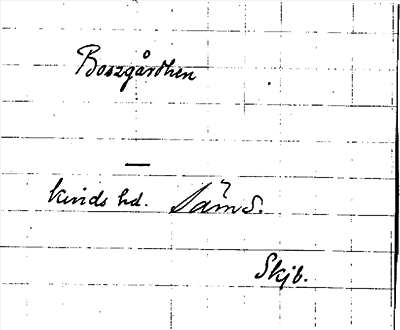 Boszgårdhen
—
Kinds hd. Säm S.
Skjb.